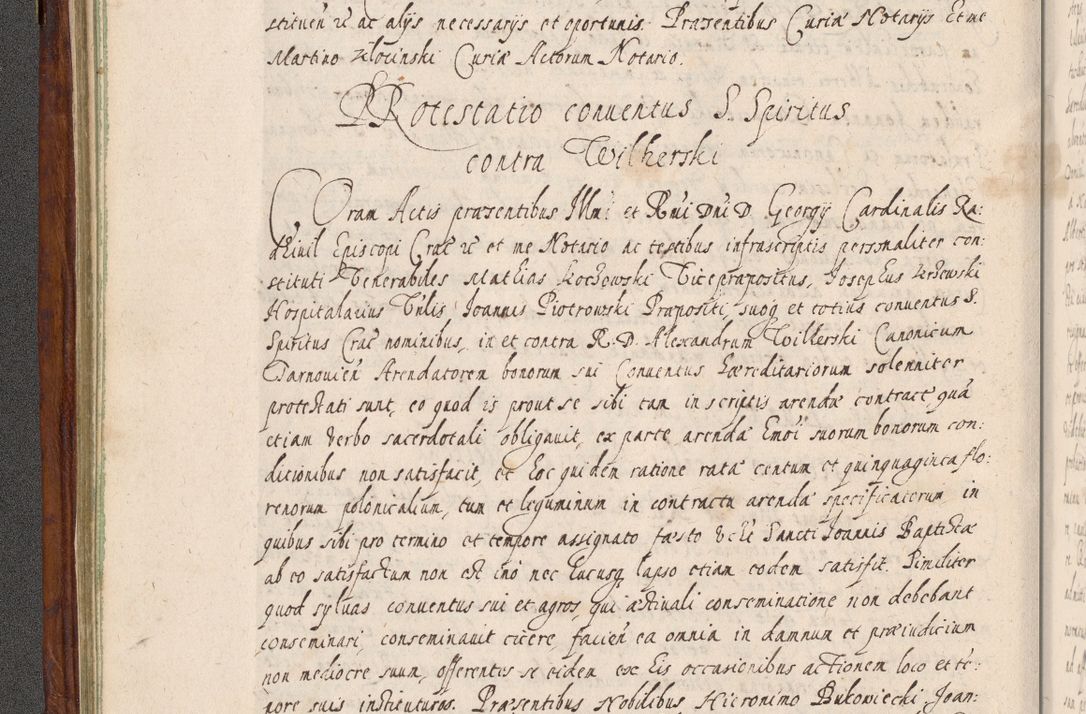 stituen̄ ꝛc ac alijs necessarijs et oportunis. Præsentibus Curiæ Notarijs Et me
Martino Zlocinski Curiæ Actorum Notario.
PRotestatio conuentus S. Spiritus
contra Wilkerski
Coram Actis præsentibus Illmi et Rn̄i Dn̄i D. Georgij Cardinalis Ra:
dziuil Episcopi Crac̄ ꝛc et me Notario ac testibus infrascriptis personaliter con:
stituti Venerabiles Mathias Kochowski Vicepræpositus, Josephus
Hospitalarius Joannis Piotrowski Præpositi, suoq et totius conuentus S.
Spiritus Crac̄ nominibus, in et contra R. D. Alexandrum Wilkerski Canonicum
Tarnouien̄ Arendatorem bonorum sui Conuentus hæreditariorum solenniter
protestati sunt, eo quod is prout se sibi tam in scriptis arendæ contract quā
etiam verbo sacerdotali obligauit, ex parte arendæ suorum bonorum con:
ditionibus non satisfacit, et hoc quidem ratione ratæ centum et quinquaginta flo:
renorum polonicalium, tum et leguminum in contractu arendæ specificatorum in
quibus sibi pro termino et tempore assignato fæsto Sancti Joannis Baptistæ
ab eo satisfactum non est imo nec hucusq lapso etiam eodem satisfit. Similiter
quod syluas conuentus sui et agros, qui æstiuali conseminatione non debebant
conseminari, conseminauit cicere, facien̄ ea omnia in damnum et præiudicium
non mediocre suum, offerentes se eidem ex his occasionibus actionem loco et te:
pore suis instituturos. Præsentibus Nobilibus Hieronimo Bukowiecki Joan: